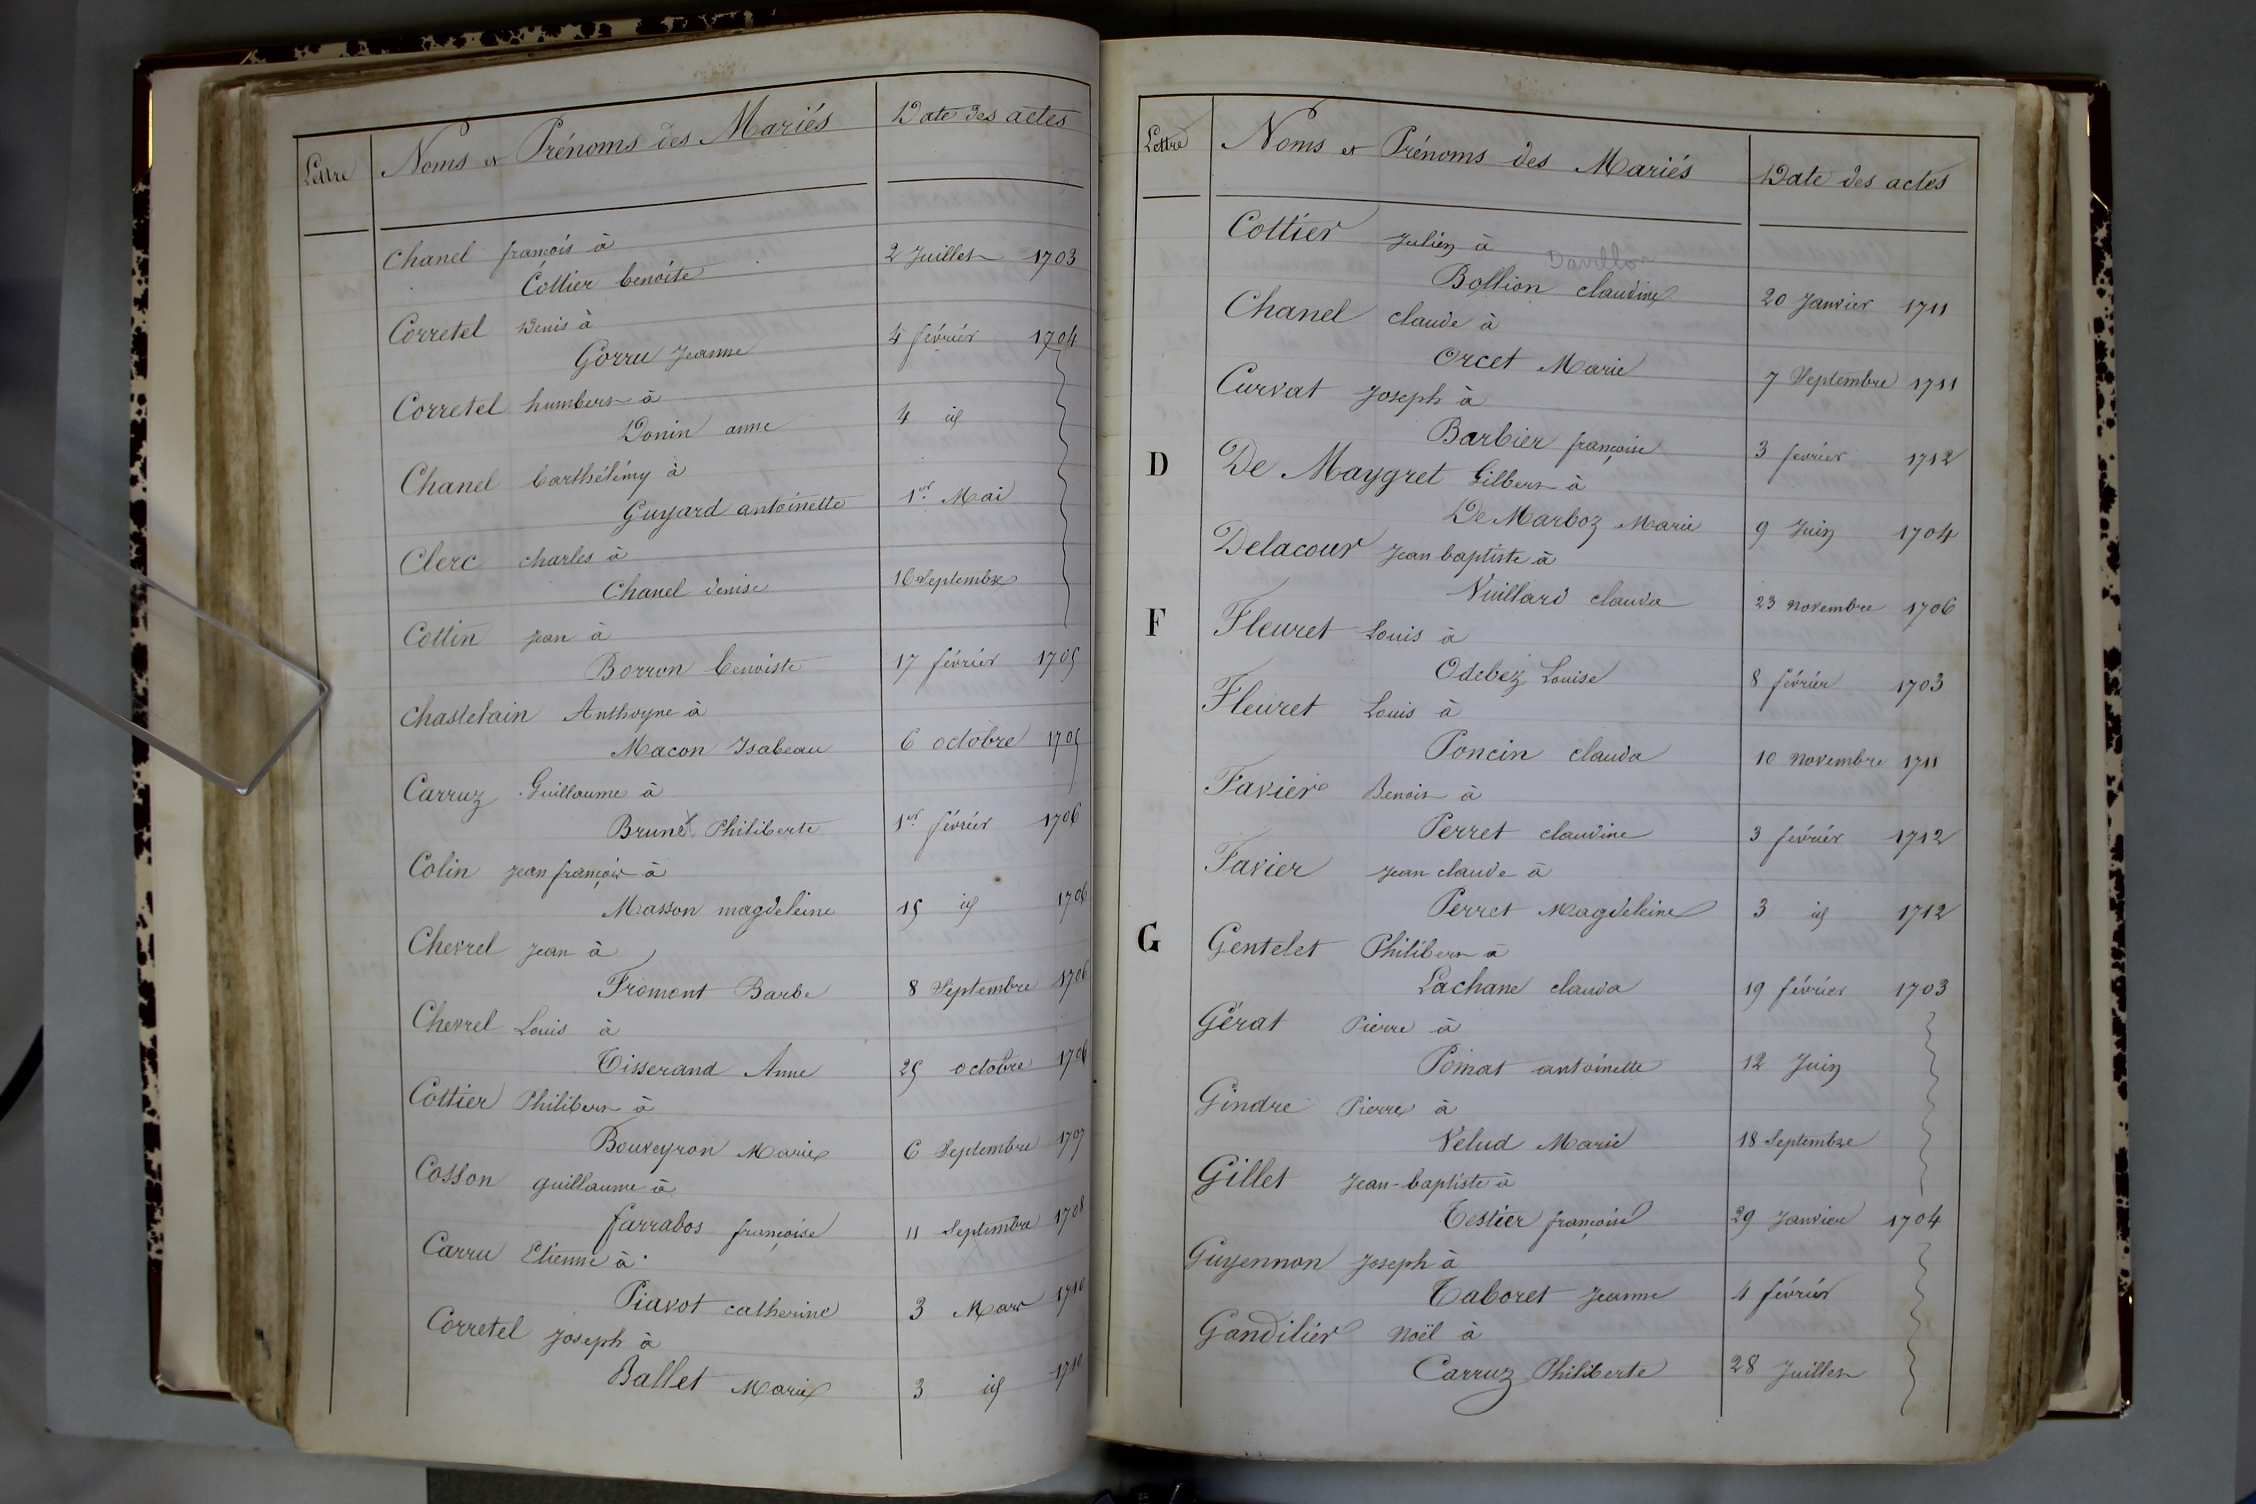 Lettre Noms et Prénoms des Mariés Date des actes
Chanel françois à
Cottier benoite 2 Juillet 1703
Corretel Denis à
Gorru Jeanne 4 février 1704
Corretel humbert à
Donin anne 4 id
Chanel barthélémy à
Guyard antoinette 1er Mai
Clerc charles à
Chanel denise 16 Septembre
Cottin jean à
Borron benoiste 17 février 1705
Chastelain Anthoyne à
Macon Isabeau 6 octobre 1705
Carruz Guillaume à
Brunet Philiberte 1er février 1706
Colin jean françois à
Masson magdeleine 15 id 1706
Chevrel jean à
Fromont Barbe 8 Septembre 1706
Chevrel Louis à
Tisserand Anne 25 octobre 1706
Cottier Philibert à
Bouveyron Marie 6 Septembre 1707
Cosson guillaume à
farrabos françoise 11 Septembre 1708
Carru Etienne à
Piavot catherine 3 Mars 1710
Corretel Joseph à
Ballet Marie 3 id 1710
Lettre Noms et Prénoms des Mariés Date des actes
Cottier Julien à
Davillon
Bollion claudine 20 Janvier 1711
Chanel claude à
Orcet Marie 7 Septembre 1711
Curvat Joseph à
Barbier françoise 3 février 1712
D De Maygret Gilbert à
De Marboz Marie 9 Juin 1704
Delacour Jean baptiste à
Vuillard clauda 23 novembre 1706
F Fleuret Louis à
Odebez Louise 8 février 1703
Fleuret Louis à
Poncin clauda 10 novembre 1711
Favier Benoit à
Perret claudine 3 février 1712
Favier jean claude à
Perret Magdeleine 3 id 1712
G Gentelet Philibert à
Lachane clauda 19 février 1703
Gérat Pierre à
Poimat antoinette 12 Juin
Gindre Pierre à
Velud Marie 18 Septembre
Gillet Jean-baptiste à
Testier françoise 29 Janvier 1704
Guyennon Joseph à
Taboret Jeanne 4 février
Gandilier Noël à
Carruz Philiberte 28 Juillet